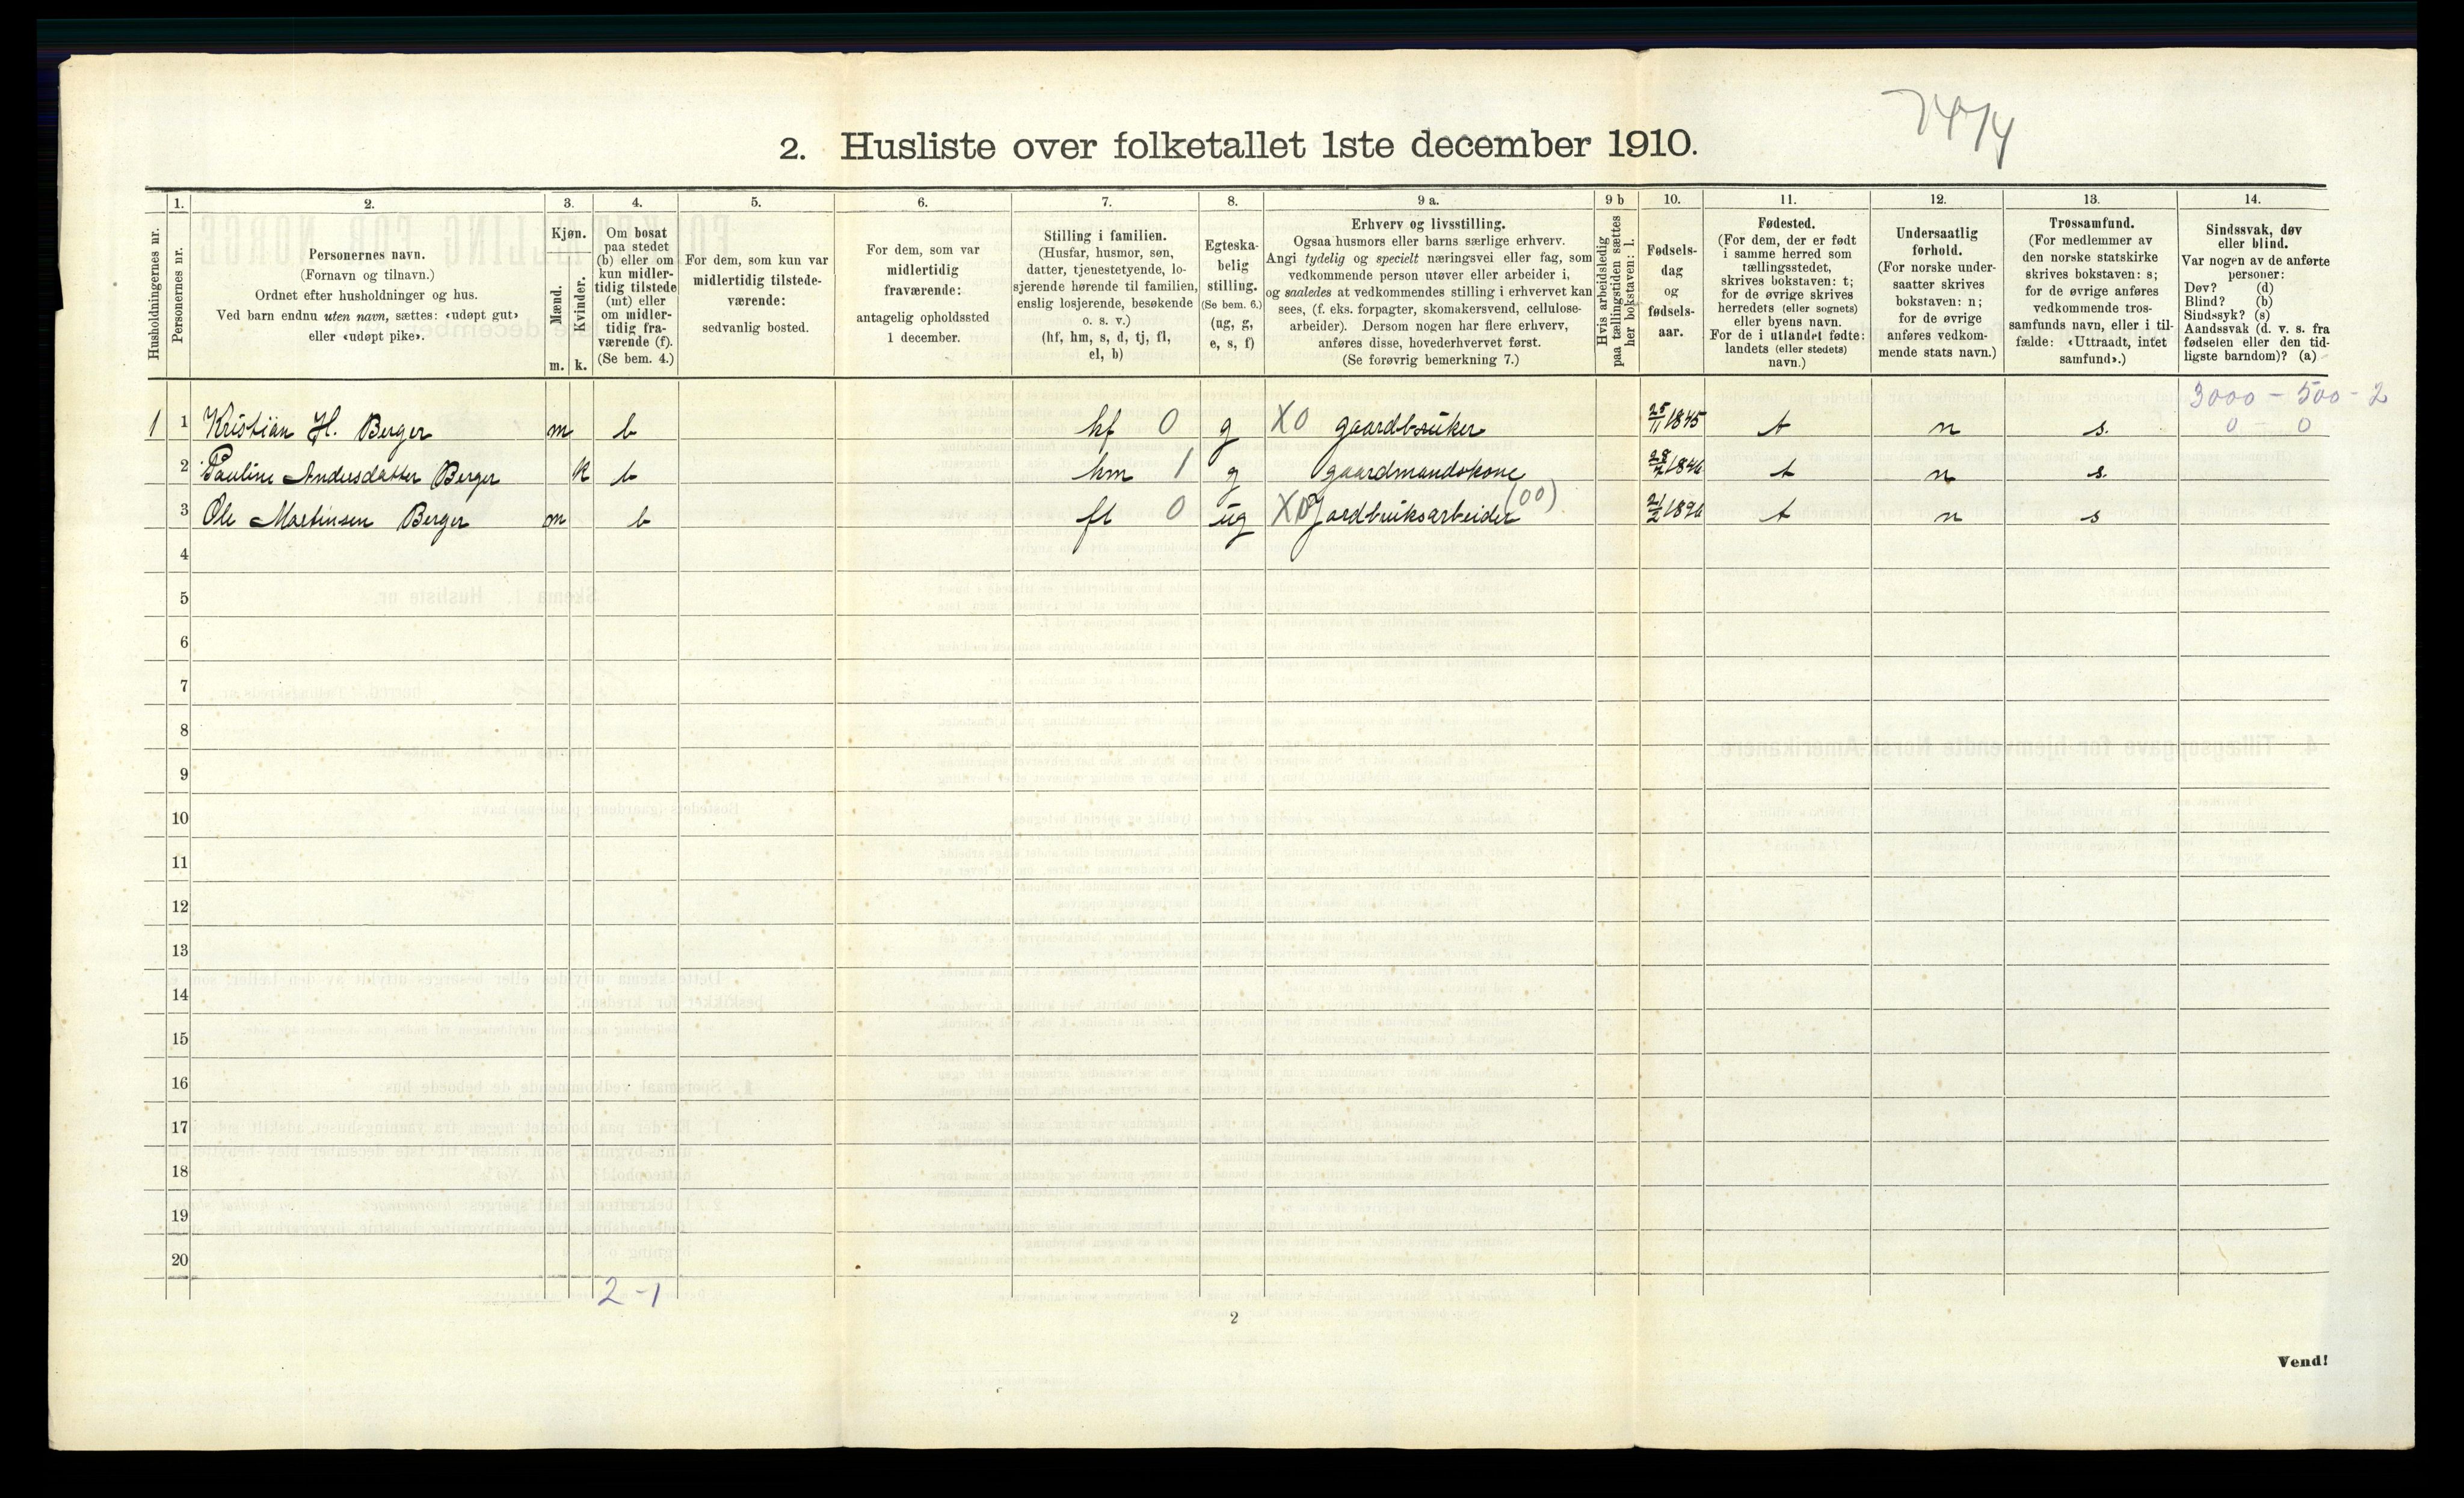 7474
2. Husliste over folketallet 1ste december 1910.
Husholdningernes nr.
1.
Personernes nr.
2.
Personernes navn.
(Fornavn og tilnavn.)
Ordnet efter husholdninger og hus.
Ved barn endnu uten navn, sættes: «udøpt gut»
eller «udøpt pike».
3.
Kjøn.
Mænd.
Kvinder.
m. k.
4.
Om bosat
paa stedet
(b) eller om
kun midler-
tidig tilstede
(mt) eller
om midler-
tidig fra-
værende (f).
(Se bem. 4.)
5.
For dem, som kun var
midlertidig tilstede-
værende:
sedvanlig bosted.
6.
For dem, som var
midlertidig
fraværende:
antagelig opholdssted
1 december.
7.
Stilling i familien.
(Husfar, husmor, søn,
datter, tjenestetyende, lo-
sjerende hørende til familien,
enslig losjerende, besøkende
o. s. v.)
(hf, hm, s, d, tj, fl,
el, b)
8.
Egteska-
belig
stilling.
(Se bem. 6.)
(ug, g,
e, s, f)
9 a.
Erhverv og livsstilling.
Ogsaa husmors eller barns særlige erhverv.
Angi tydelig og specielt næringsvei eller fag, som
vedkommende person utøver eller arbeider i,
og saaledes at vedkommendes stilling i erhvervet kan
sees, (f. eks. forpagter, skomakersvend, cellulose-
arbeider). Dersom nogen har flere erhverv,
anføres disse, hovederhvervet først.
(Se forøvrig bemerkning 7.)
9 b
Hvis arbeidsledig
paa tællingstiden sættes
her bokstaven: l.
10.
Fødsels-
dag
og
fødsels-
aar.
11.
Fødested.
(For dem, der er født
i samme herred som
tællingsstedet,
skrives bokstaven: t;
for de øvrige skrives
herredets (eller sognets)
eller byens navn.
For de i utlandet fødte:
landets (eller stedets)
navn.)
12.
Undersaatlig
forhold.
(For norske under-
saatter skrives
bokstaven: n;
for de øvrige
anføres vedkom-
mende stats navn.)
13.
Trossamfund.
(For medlemmer av
den norske statskirke
skrives bokstaven: s;
for de øvrige anføres
vedkommende tros-
samfunds navn, eller i til-
fælde: «Uttraadt, intet
samfund».)
14.
Sindssvak, døv
eller blind.
Var nogen av de anførte
personer:
Døv? (d)
Blind? (b)
Sindssyk? (s)
Aandssvak (d. v. s. fra
fødselen eller den tid-
ligste barndom)? (a)
3000 - 500 - 2
1 1 Kristian H. Berger m b hf 0 g X0 gaardbruker 25/11 1845 t n s. 0 - 0
2 Pauline Andersdatter Berger k b hm 1 g gaardmandskone t n s.
3 Ole Martinsen Berger m b fl 0 ug X0 Jordbruksarbeider (00) t n s
4
5
6
7
8
9
10
11
12
13
14
15
16
17
18
19
20
2-1
2
Vend!